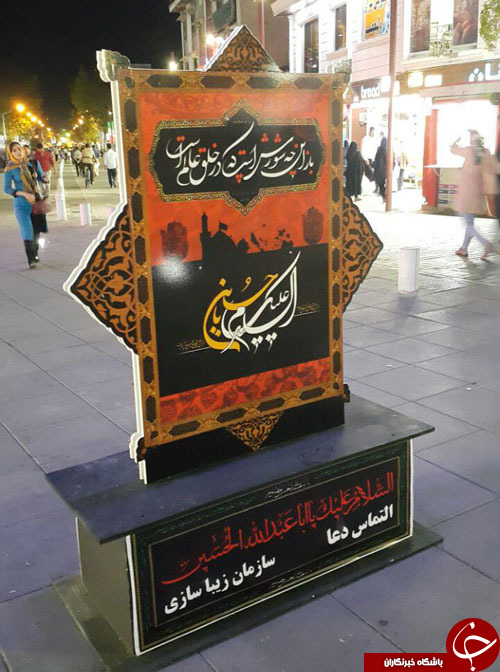 باز این چه شورش است که در خلق عالم است
السلام علیک یا حسین
السلام علیک یا ابا عبدالله الحسین
التماس دعا
سازمان زیبا سازی
باشگاه خبرنگاران